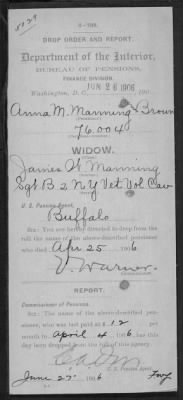 DROP ORDER AND REPORT.
Department of the Interior,
BUREAU OF PENSIONS,
FINANCE DIVISION.
Washington, D. C., JUN 26 1906, 190
Anna M. Manning Brown
76.004
WIDOW.
James W Manning
Sgt B 2 N Y Vet Vol Cav
U. S. Pension Agent,
Buffalo
SIR: You are hereby directed to drop from the
roll the name of the above-described pensioner
who died Apr 25 1906
V. Warner
Commissioner.
REPORT.
Commissioner of Pensions.
SIR: The name of the above-described pen-
sioner, who was last paid at $ 12 per
month to April 4, 1906, has this
day been dropped from the roll of this agency.
U. S. Pension Agent.
June 27 1906